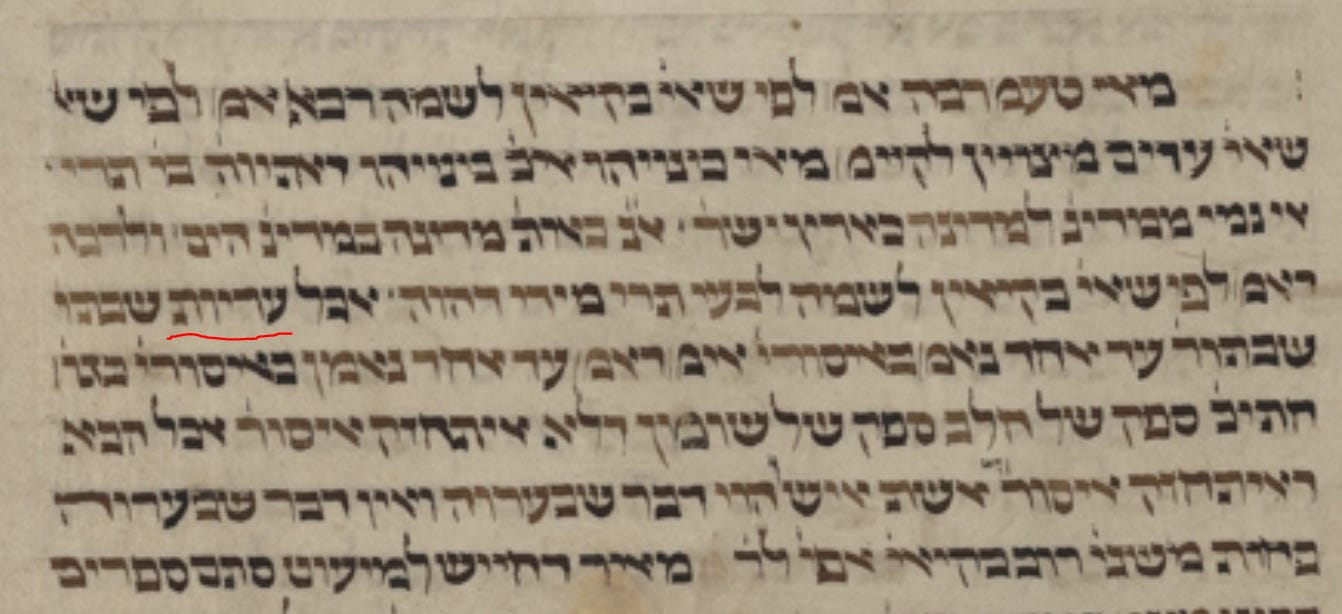 מאי טעמ' רבה אמ' לפי שאי' בקיאין לשמה רבא אמ' לפי שא'
שאי' עדים מצויין לקיימ' מאי בינייהו איכ' בינייהו דאתיוה בי תרי ·
אי נמי ממדינ' למדינה בארץ ישר' · אנ' באות' מדינה במדינ' הים · ולרבה
דאמ' לפי שאי' בקיאין לשמה לבעי תרי מידי דהוה · אכל עדיות שבתו
שבתור' עד אחד נאמ' באיסורי' אימ' דאמ' עד אחד נאמן באיסורי' כגו'
חתיכ' ספק של חלב ספק של שומן דלא איתחזק איסור' אבל הכא
דאיתחזק איסור' אשת איש הוי דבר שבערוה ואין דבר שבערוה
פחות משני רוב בקיאי' אפי' לר' מאיר דחייש למיעוט סתם ספרים